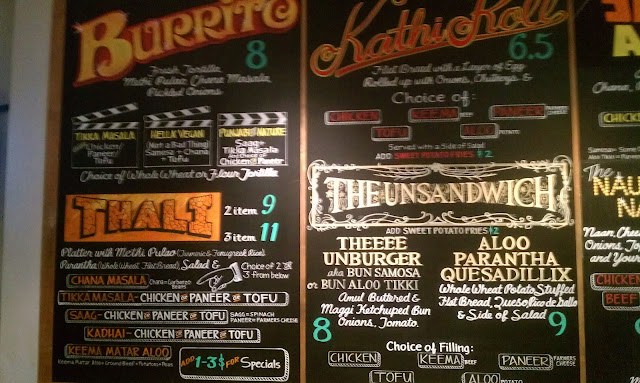 BURRITO
8
Fresh Tortilla,
Methi Pulao, Chana Masala,
Pickled Onions.
TIKKA MASALA
Chicken/
Paneer/
Tofu
HELLA VEGAN
(Not a Bad Thing)
Samosa + Chana +
Tofu
PUNJABI BY NATURE
Saag +
Tikka Masala
Chicken or Paneer
Choice of Whole Wheat or Flour Tortilla
THALI
2 item 9
3 item 11
Platter with Methi Pulao (Turmeric & Fenugreek Rice)
Parantha (Whole Wheat Flat Bread), Salad &
Choice of 2 or
3 from below
CHANA MASALA Chana = Garbanzo
Beans
TIKKA MASALA - CHICKEN OR PANEER OR TOFU
SAAG - CHICKEN OR PANEER OR TOFU
SAAG = SPINACH
PANEER = FARMERS CHEESE
KADHAI - CHICKEN OR PANEER OR TOFU
KEEMA MATAR ALOO
Keema Matar Aloo = Ground Beef + Potatoes + Peas
ADD 1-3$ FOR Specials
Kathi Roll
6.5
Flat Bread with a Layer of Egg
Rolled up with Onions, Chutneys, &
Choice of:
CHICKEN
KEEMA BEEF
PANEER FARMERS
CHEESE
TOFU
ALOO POTATO
Served with a Side of Salad
ADD SWEET POTATO FRIES $2
THE UNSANDWICH
ADD SWEET POTATO FRIES $2
THEEEE
UNBURGER
aka BUN SAMOSA
or BUN ALOO TIKKI
Amul Buttered &
Maggi Ketchuped Bun
Onions, Tomato.
8
ALOO
PARANTHA
QUESADILLIX
Whole Wheat Potato Stuffed
Flat Bread, Quesoflico de ballo
& Side of Salad
9
Choice of Filling:
CHICKEN
KEEMA BEEF
PANEER FARMERS
CHEESE
TOFU
ALOO POTATO
Chana,
CHICKEN
Samosa + Some
Aloo Tikki =
The
NAU
Naan, Chee
Onions, To
and Your
CHICKEN
BEEF